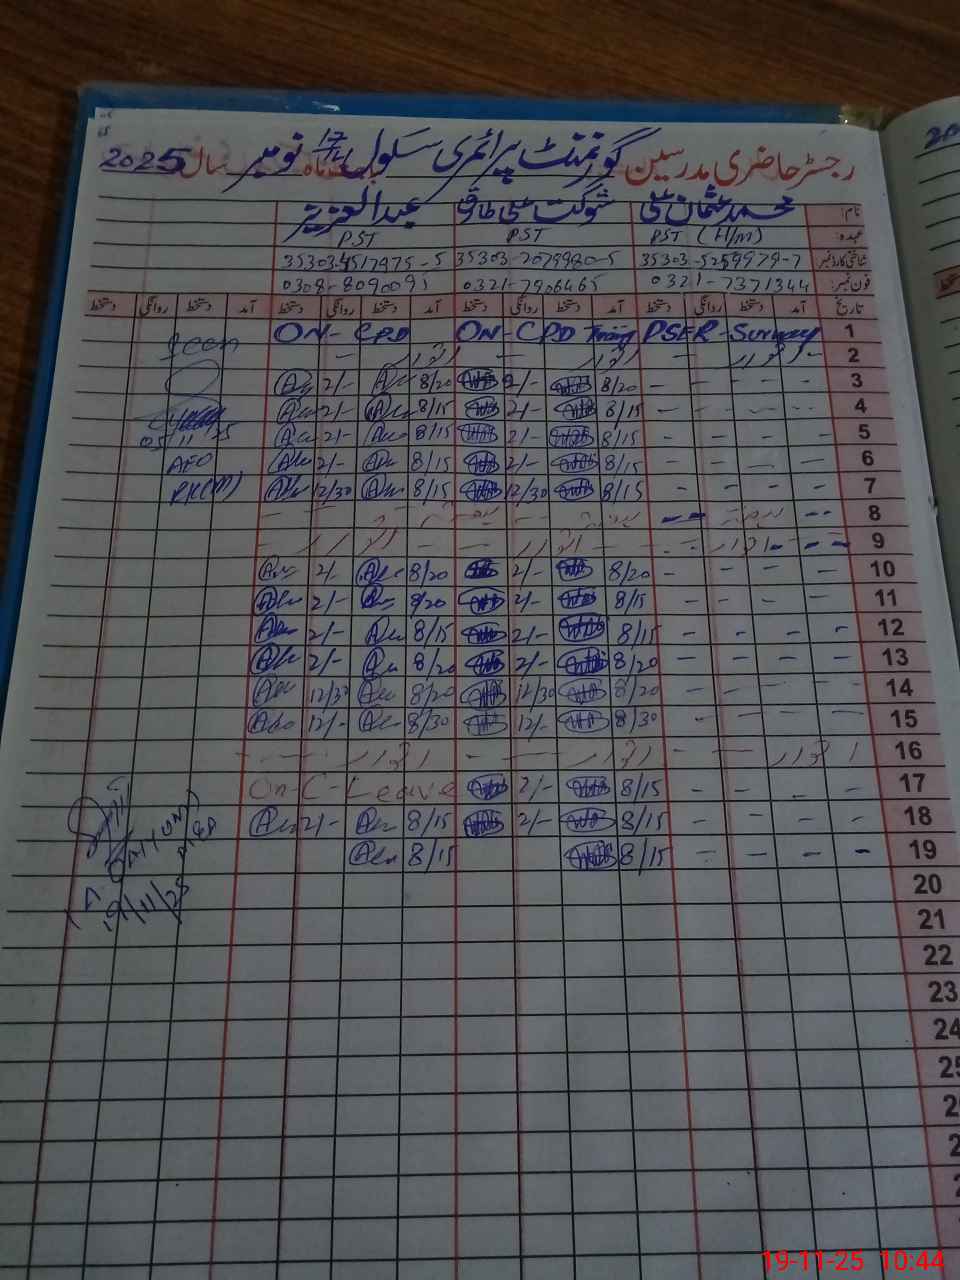 رجسٹر حاضری مدرسین گورنمنٹ پرائمری سکول 17/14 بابت ماہ نومبر سال 2025
نام: محمد عثمان علی شوکت علی طارق عبدالعزیز
عہدہ: PST (H/M) PST PST
شناختی کارڈ نمبر 35303-5259979-7 35303-2079980-5 35303-4517975-5
فون نمبر: 0321-7371344 0321-7906465 0308-8090095
تاریخ آمد دستخط روانگی دستخط آمد دستخط روانگی دستخط آمد دستخط روانگی دستخط آمد دستخط روانگی دستخط
1 PSER-Survey ON-CPD Traing ON-CPD
2 اتوار اتوار اتوار
3 8/20 2/- 8/20 2/-
4 8/15 2/- 8/15 2/-
5 8/15 2/- 8/15 2/- 05/11/25
6 8/15 2/- 8/15 2/- AEO
7 8/15 12/30 8/15 12/30
8
9 اتوار اتوار اتوار
10 8/20 2/- 8/20 2/-
11 8/15 2/- 8/20 2/-
12 8/15 2/- 8/15 2/-
13 8/20 2/- 8/20 2/-
14 8/20 12/30 8/20 12/30
15 8/30 12/- 8/30 12/-
16 اتوار اتوار اتوار
17 8/15 2/- On-C-Leave
18 8/15 2/- 8/15 2/-
19 8/15 8/15
19/11/25
20
21
22
23
24
19-11-25 10:44